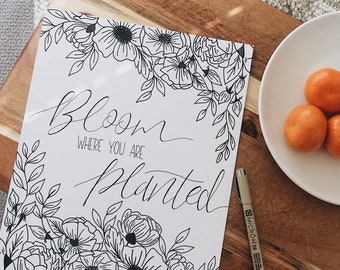 Bloom
WHERE YOU ARE
Planted
MICRON